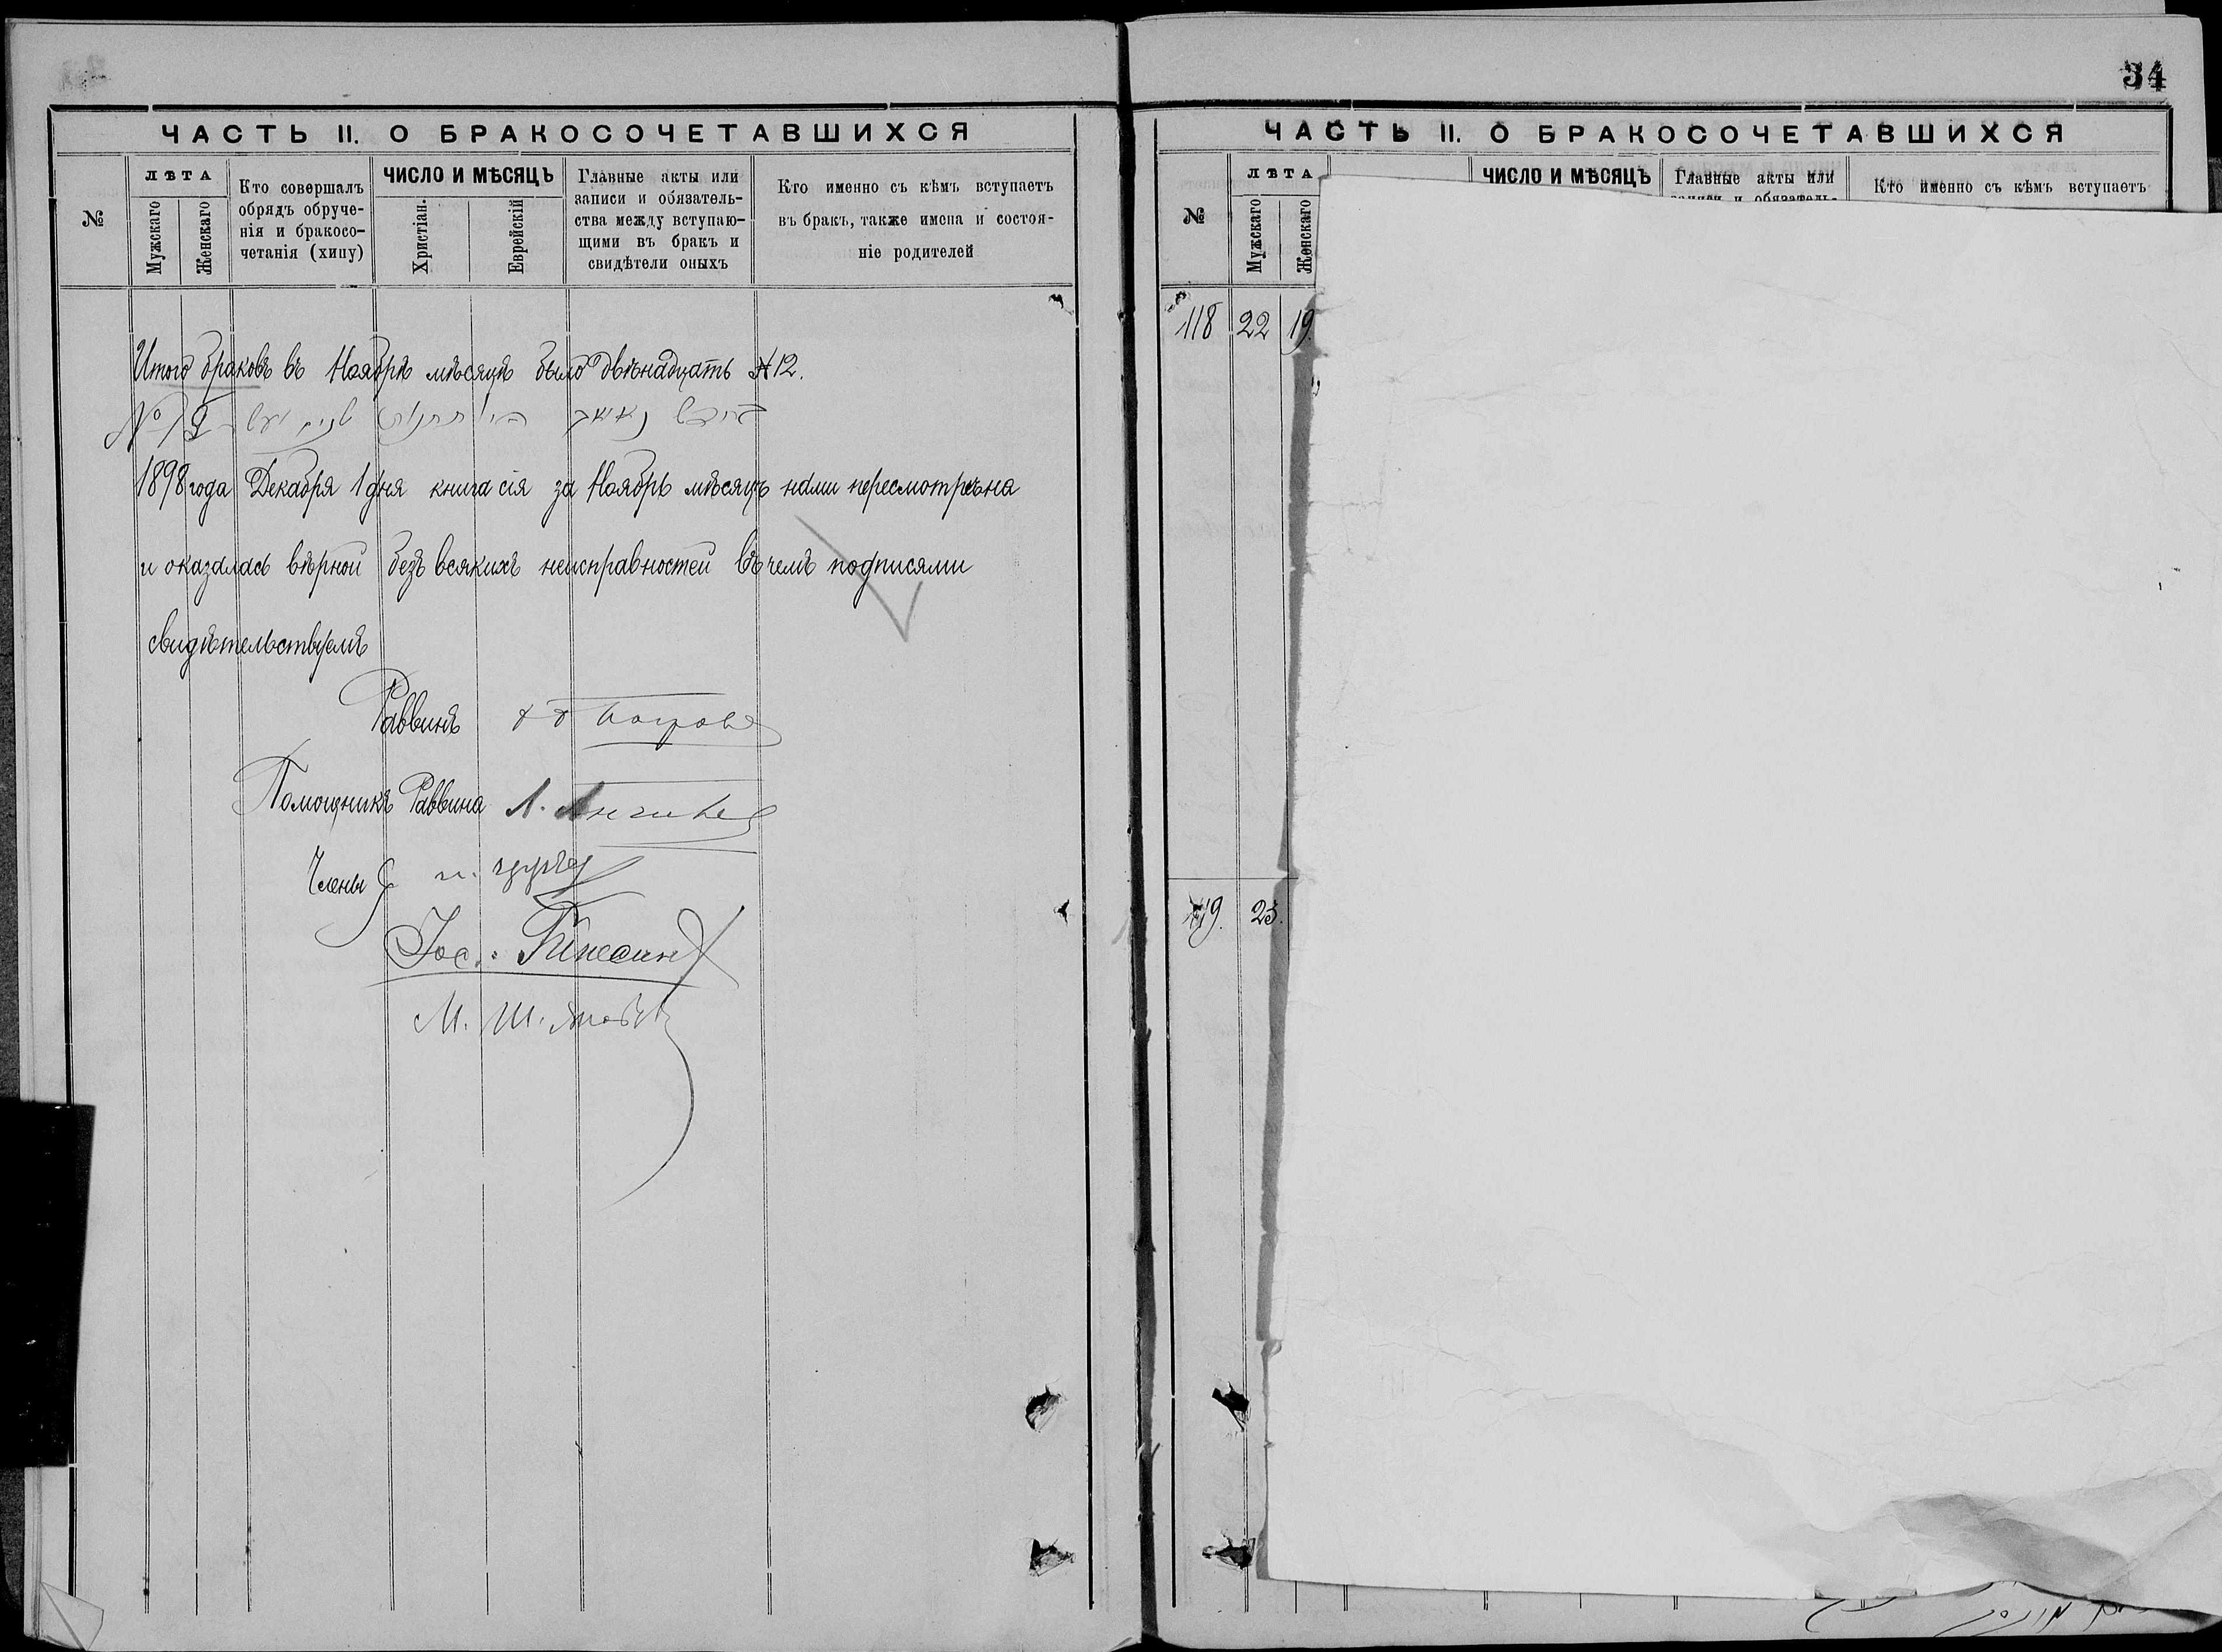 ЧАСТЬ II. О БРАКОСОЧЕТАВШИХСЯ
№
ЛѢТА
Мужскаго
Женскаго
Кто совершалъ
обрядъ обруче-
нія и бракосо-
четанія (хипу)
ЧИСЛО И МѢСЯЦЪ
Христіан.
Еврейскій
Главные акты или
записи и обязатель-
ства между вступаю-
щими въ бракъ и
свидѣтели оныхъ
Кто именно съ кѣмъ вступаетъ
въ бракъ, также имена и состоя-
ніе родителей
Итого браковъ въ Ноябрѣ мѣсяцѣ было двѣнадцать №12.
№12
1898 года Декабря 1 дня книга сія за Ноябрь мѣсяцъ нами пересмотрена
и оказалась вѣрной безъ всякихъ неисправностей въ чемъ подписями
свидѣтельствуемъ
Раввинъ
Помощникъ Раввина Л.
Члены
Іос.
М. Ш.
34
ЧАСТЬ II. О БРАКОСОЧЕТАВШИХСЯ
№
ЛѢТА
Мужскаго
Женскаго
ЧИСЛО И МѢСЯЦЪ
Главные акты или
записи и обязатель-
Кто именно съ кѣмъ вступаетъ
118 22 19.
119. 23.